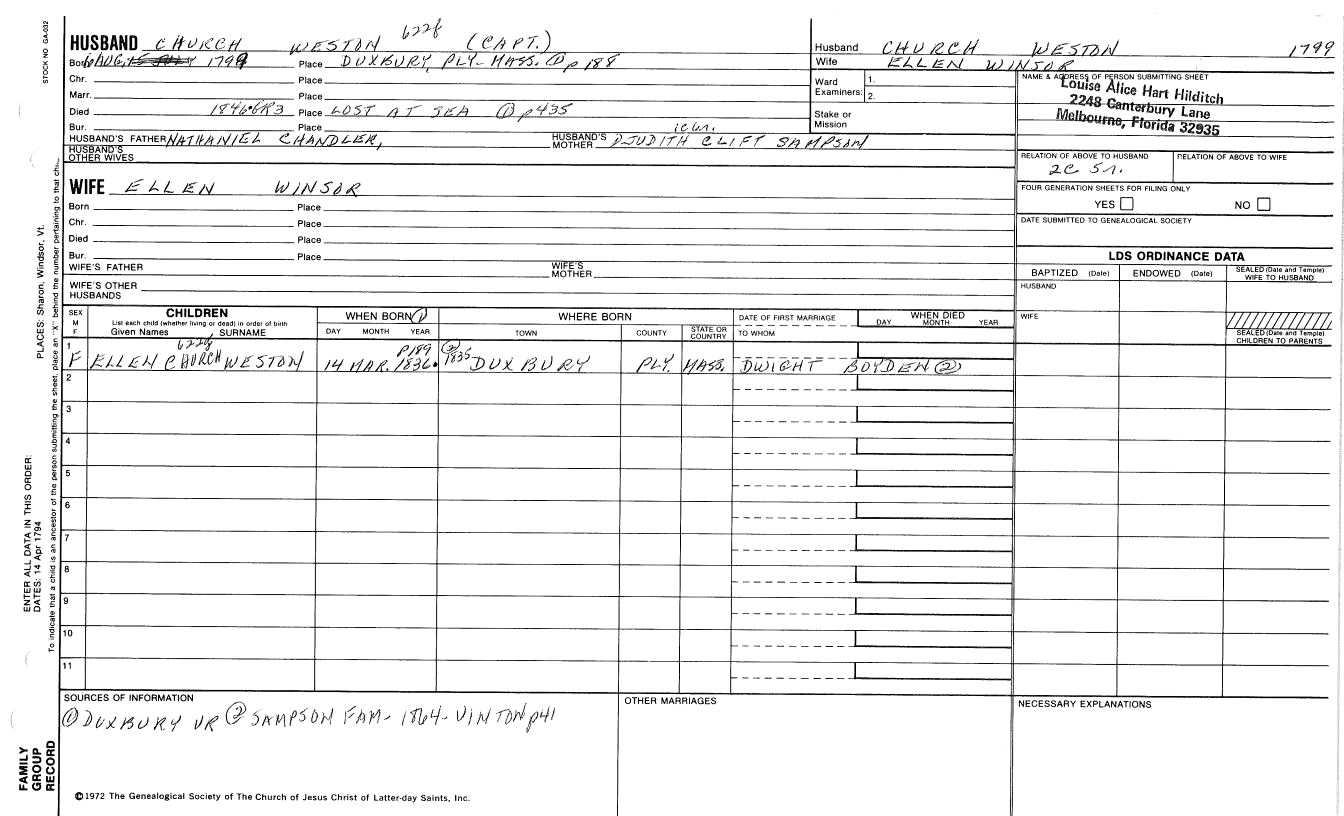 STOCK NO GA-032
6228
HUSBAND CHURCH WESTON (CAPT.)
Born 6 AUG. 15 JULY 1799 Place DUXBURY, PLY- MASS. ① p 188
Chr. Place
Marr. Place
Died 1846 GR3 Place LOST AT SEA ① p435
Bur. Place
HUSBAND'S FATHER NATHANIEL CHANDLER, HUSBAND'S MOTHER JUDITH CLIFT SAMPSON
HUSBAND'S OTHER WIVES
Husband CHURCH WESTON 1799
Wife ELLEN WINSOR
Ward Examiners: 1. 2.
Stake or Mission
NAME & ADDRESS OF PERSON SUBMITTING SHEET
Louise Alice Hart Hilditch
2248 Canterbury Lane
Melbourne, Florida 32935
RELATION OF ABOVE TO HUSBAND RELATION OF ABOVE TO WIFE
2C 5r.
FOUR GENERATION SHEETS FOR FILING ONLY
YES NO
DATE SUBMITTED TO GENEALOGICAL SOCIETY
WIFE ELLEN WINSOR
Born Place
Chr. Place
Died Place
Bur. Place
WIFE'S FATHER WIFE'S MOTHER
WIFE'S OTHER HUSBANDS
LDS ORDINANCE DATA
BAPTIZED (Date) ENDOWED (Date) SEALED (Date and Temple) WIFE TO HUSBAND
HUSBAND
WIFE
SEALED (Date and Temple) CHILDREN TO PARENTS
SEX M F
CHILDREN
List each child (whether living or dead) in order of birth
Given Names SURNAME
WHEN BORN ①
DAY MONTH YEAR
WHERE BORN
TOWN COUNTY STATE OR COUNTRY
DATE OF FIRST MARRIAGE
TO WHOM
WHEN DIED
DAY MONTH YEAR
6228 p189 ② 1835
1 F ELLEN CHURCH WESTON 14 MAR. 1836. DUXBURY PLY. MASS. DWIGHT BOYDEN ②
2
3
4
5
6
7
8
9
10
11
SOURCES OF INFORMATION
① DUXBURY VR ② SAMPSON FAM- 1864- VINTON p41
OTHER MARRIAGES
NECESSARY EXPLANATIONS
©1972 The Genealogical Society of The Church of Jesus Christ of Latter-day Saints, Inc.
ENTER ALL DATA IN THIS ORDER:
DATES: 14 Apr 1794
PLACES: Sharon, Windsor, Vt.
To indicate that a child is an ancestor of the person submitting the sheet, place an "X" behind the number pertaining to that
FAMILY GROUP RECORD